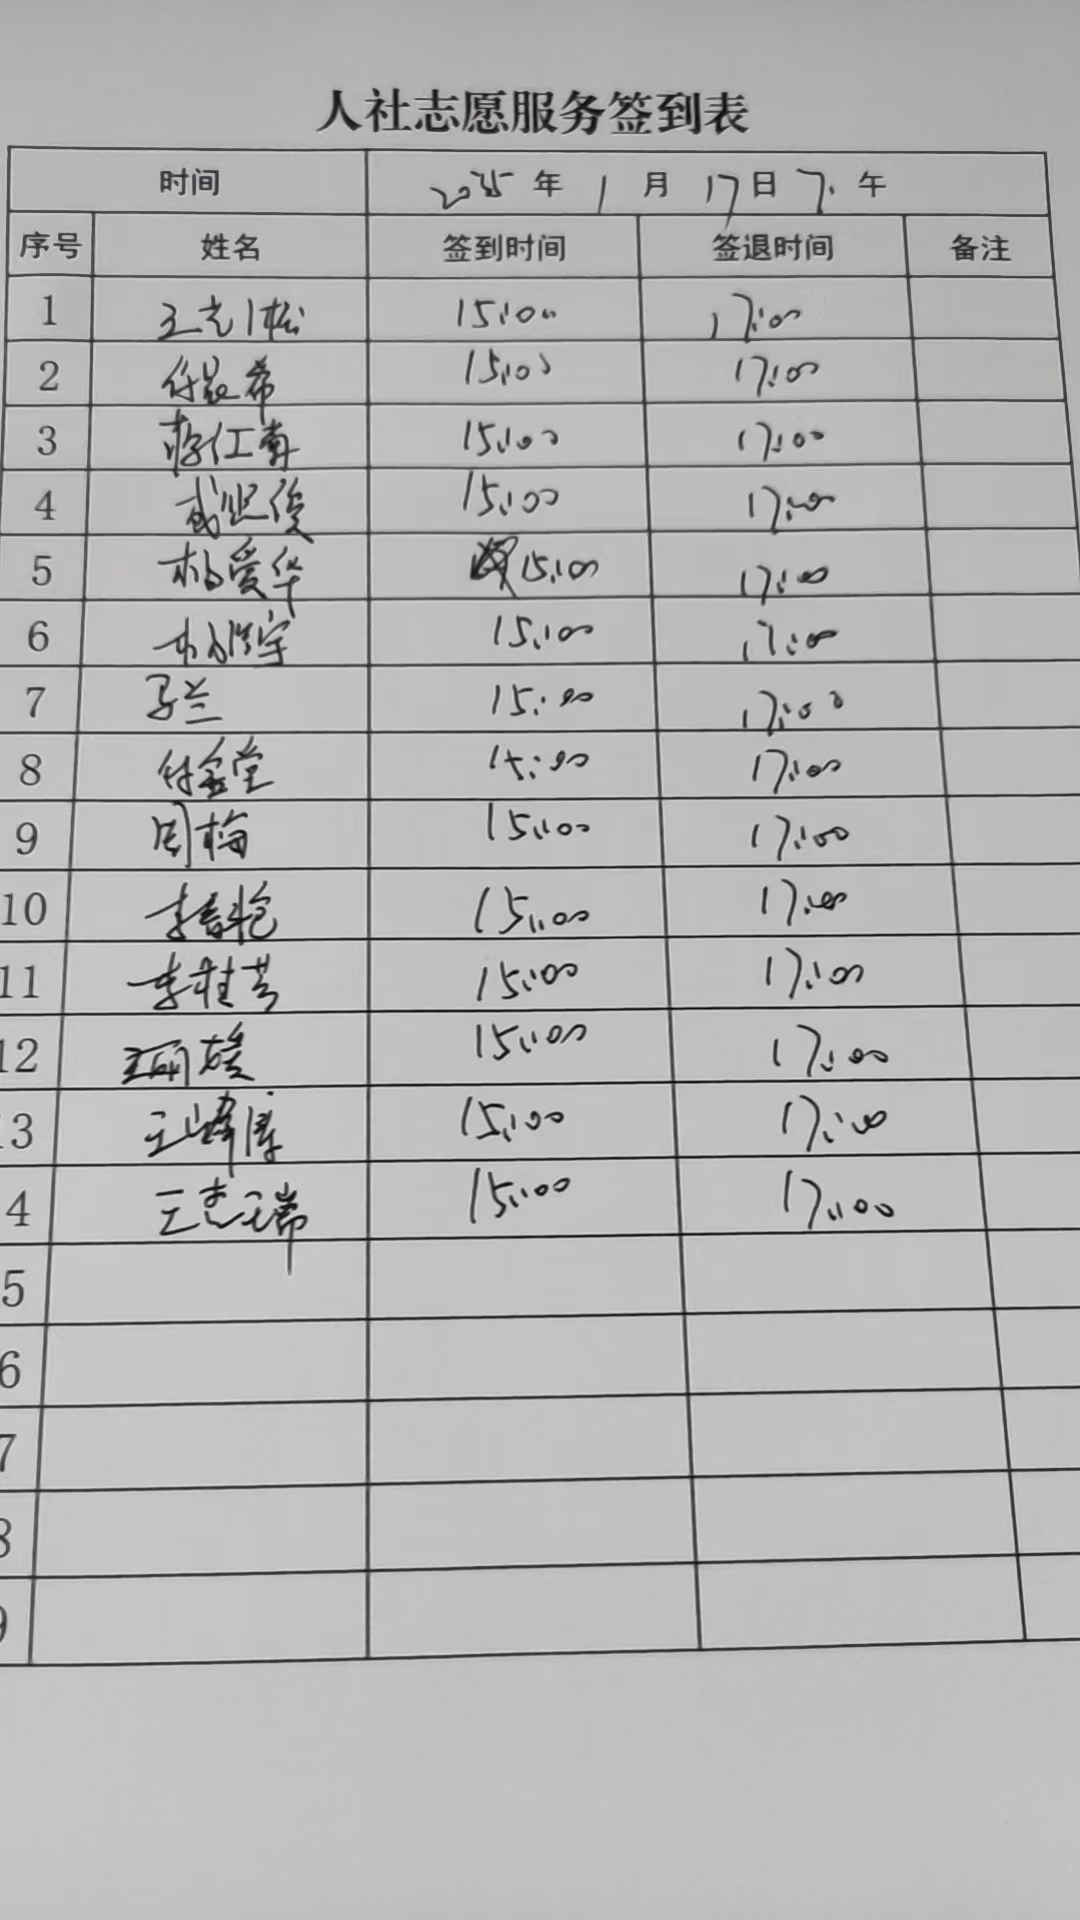 人社志愿服务签到表
时间 2025年1月17日下午
序号 姓名 签到时间 签退时间 备注
1 15:00 17:00
2 15:00 17:00
3 蒋仁南 15:00 17:00
4 15:00 17:00
5 杨爱华 15:00 17:00
6 15:00 17:00
7 马兰 15:00 17:00
8 付金堂 15:00 17:00
9 周梅 15:00 17:00
10 李春艳 15:00 17:00
11 李桂芳 15:00 17:00
12 15:00 17:00
3 王峰涛 15:00 17:00
4 王志瑞 15:00 17:00
5
6
7
8
9